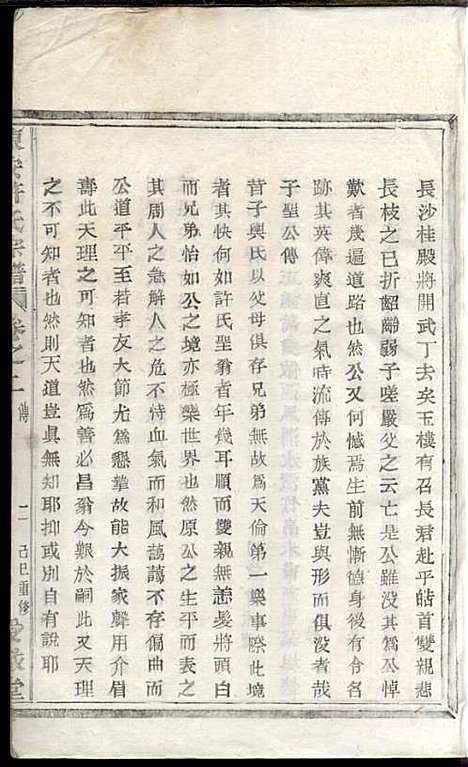 長沙桂殿將開武丁去矣玉樓有召長君赴乎皓首雙親悲
長枝之已折齠齡弱子嗟嚴父之云亡是公雖沒其爲公悼
歎者幾遍道路也然公又何憾焉生前無慚德身後有令名
跡其英偉爽直之氣時流傳於族黨夫豈與形而俱沒者哉
子聖公傳
昔子輿氏以父母俱存兄弟無故爲天倫第一樂事際此境
者其快何如許氏聖翁者年幾耳順而雙親無恙髮將頭白
而兄弟怡如公之境亦極樂世界也然原公之生平而表之
其周人之急解人之危不特血氣而和風藹藹不存偏曲而
公道平平至若孝友大節尤爲懇摯故能大振家聲用介眉
壽此天理之可知者也然爲善必昌翁今艱於嗣此又天理
之不可知者也然則天道豈眞無知耶抑或別自有說耶
東安許氏宗譜
卷之二
傳
二
己巳重修